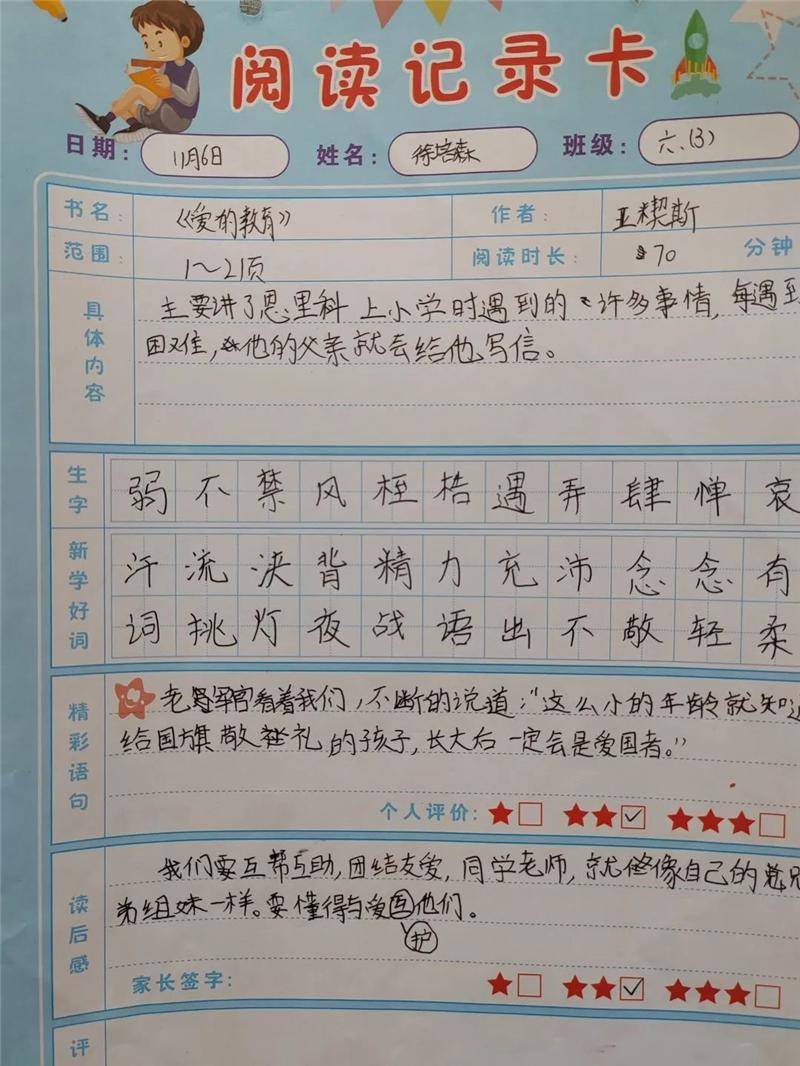 阅读记录卡
日期: 11月6日 姓名: 徐培森 班级: 六.(3)
书名: 《爱的教育》 作者: 亚米契斯
范围: 1~21页 阅读时长: 70 分钟
具体内容
主要讲了恩里科上小学时遇到的许多事情,每遇到
困难,他的父亲就会给他写信。
生字
弱不禁风桎梏遇弄肆惮哀
新学好词
汗流浃背精力充沛念念有
词挑灯夜战语出不敬轻柔
精彩语句
老军官看着我们,不断的说道:“这么小的年龄就知道
给国旗敬礼的孩子,长大后一定会是爱国者。”
个人评价:
读后感
我们要互帮互助,团结友爱,同学老师,就像自己的兄
弟组妹一样。要懂得与爱护他们。
家长签字:
评